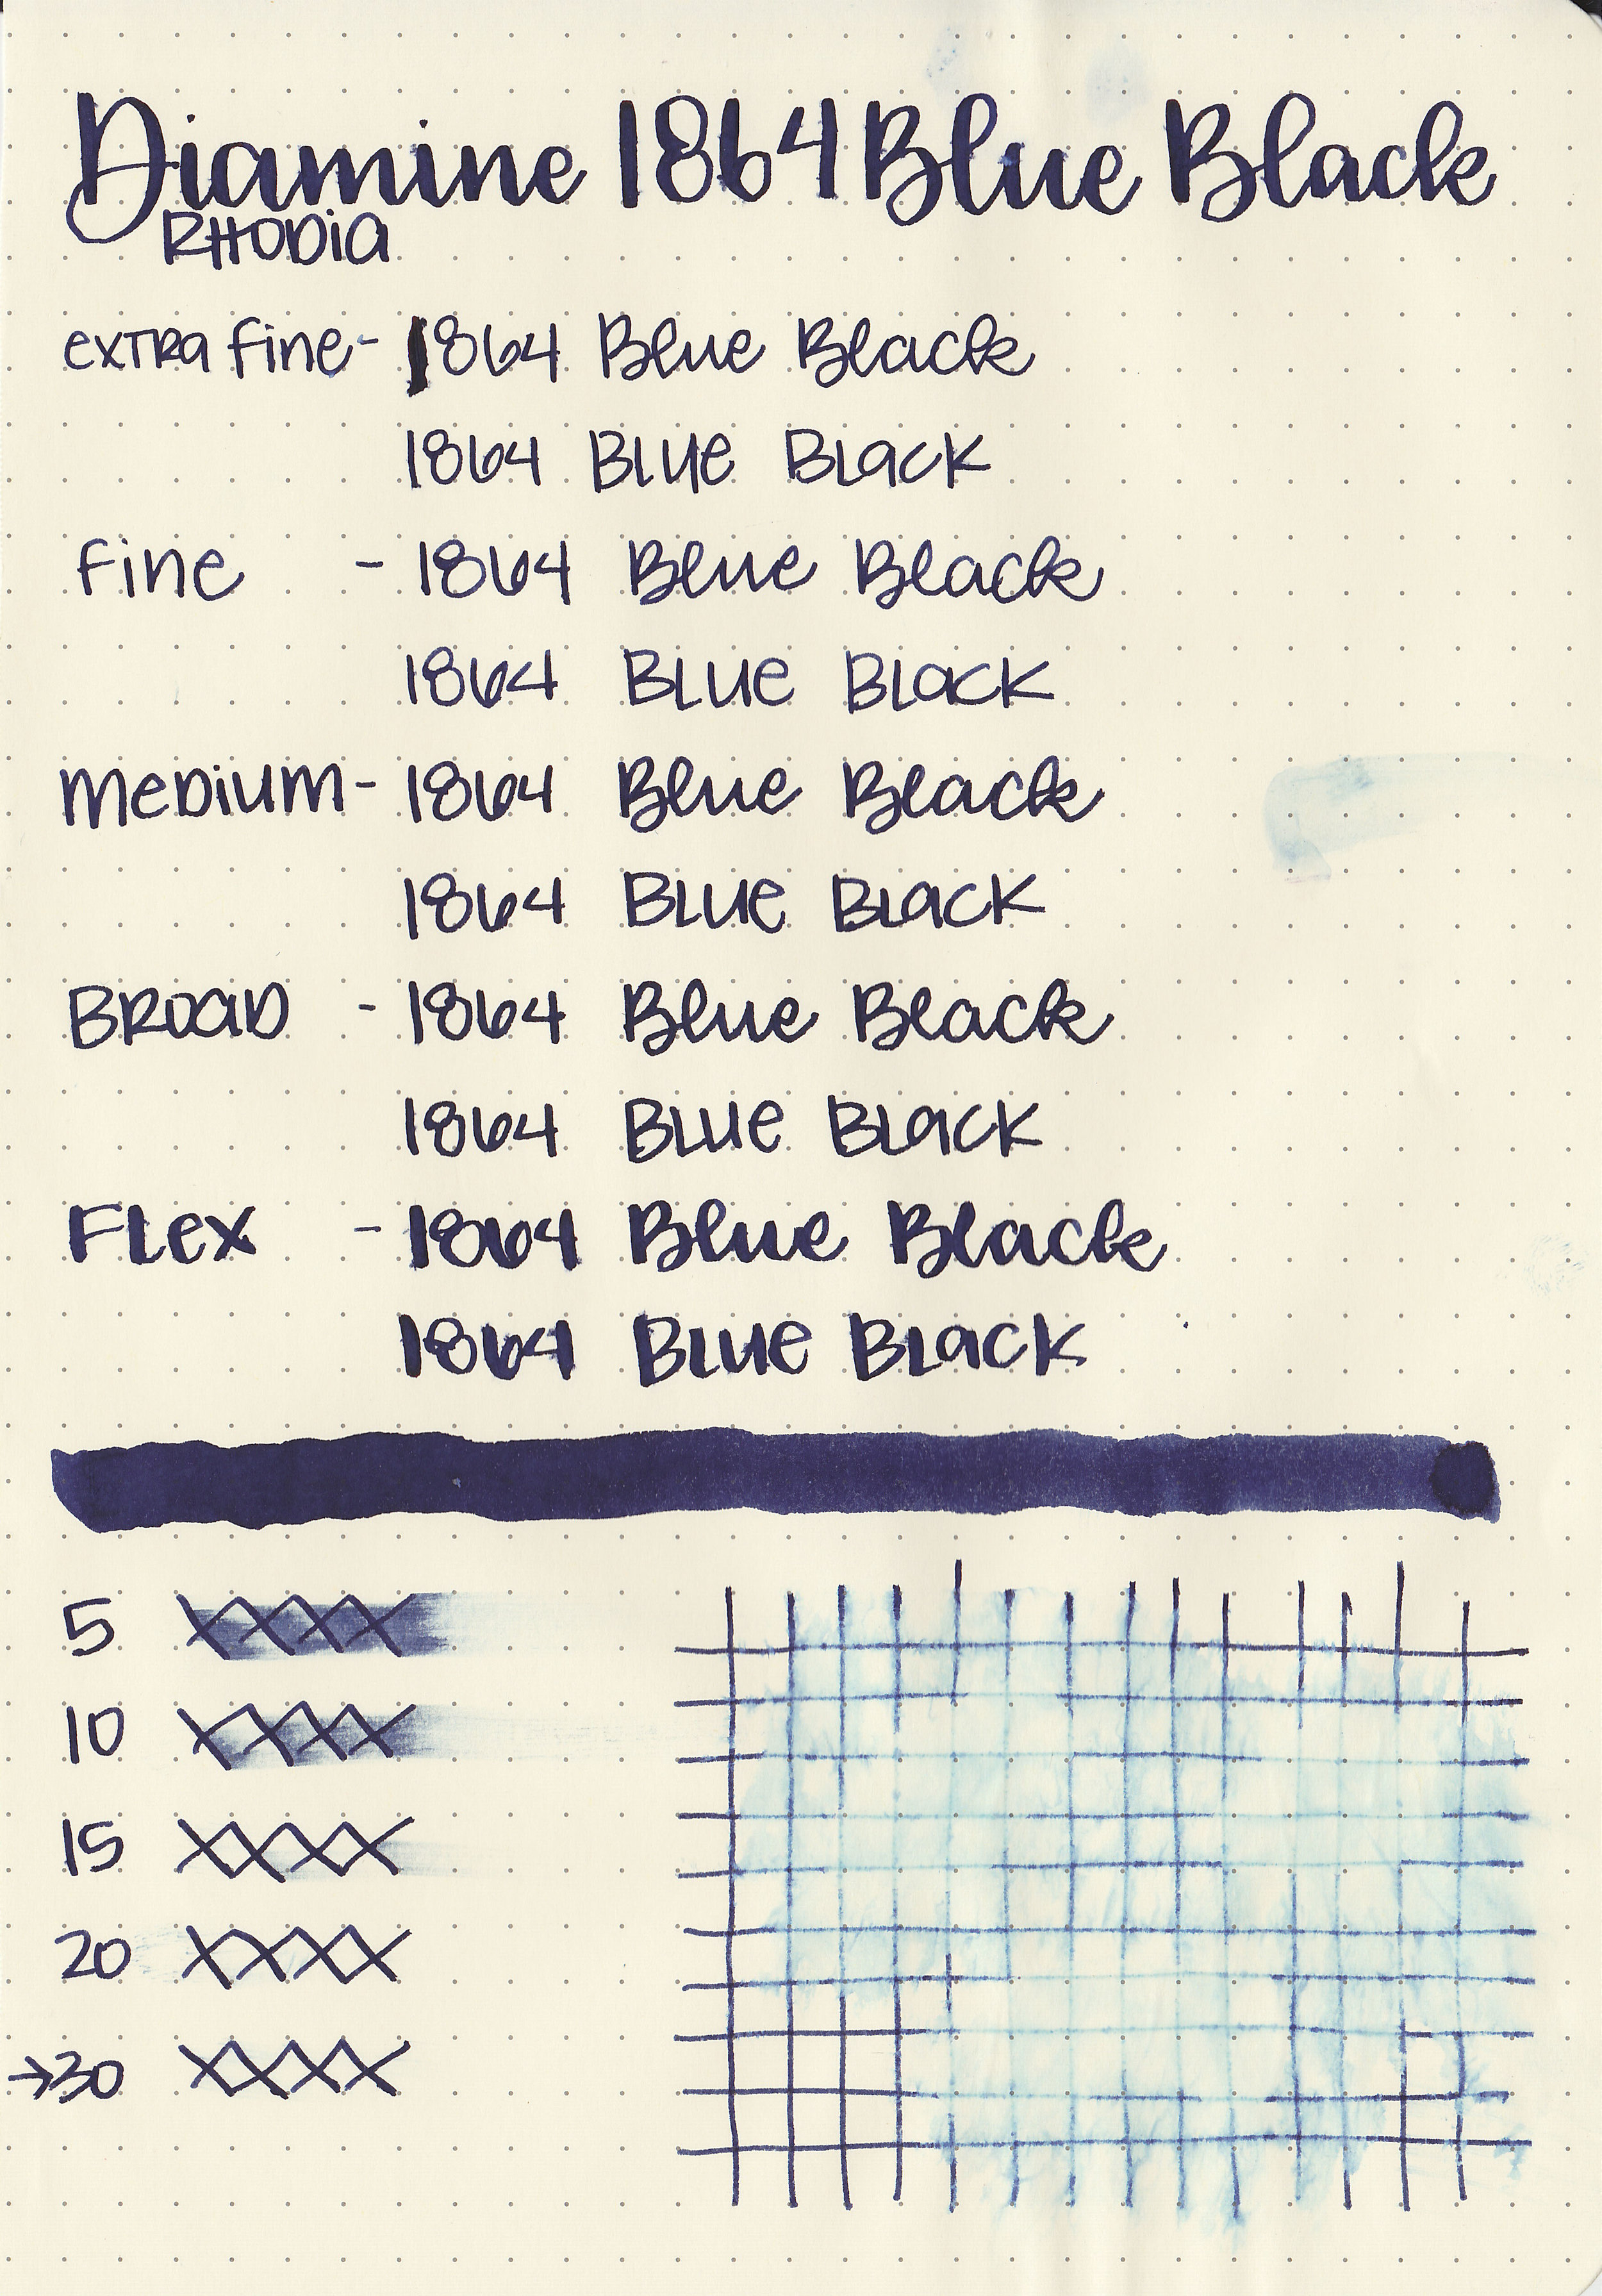 Diamine 1864 Blue Black
RHODIA
exTRa fine - 1864 Blue Black
1864 BLUe BLaCK
fine - 1864 Blue Black
1864 BLUe BLaCK
MeDiUM - 1864 Blue Black
1864 BLUe BLaCK
BROaD - 1864 Blue Black
1864 BLUe BLaCK
FLex - 1864 Blue Black
1864 BLUe BLaCK
5 XXXX
10 XXXX
15 XXXX
20 XXXX
→30 XXXX